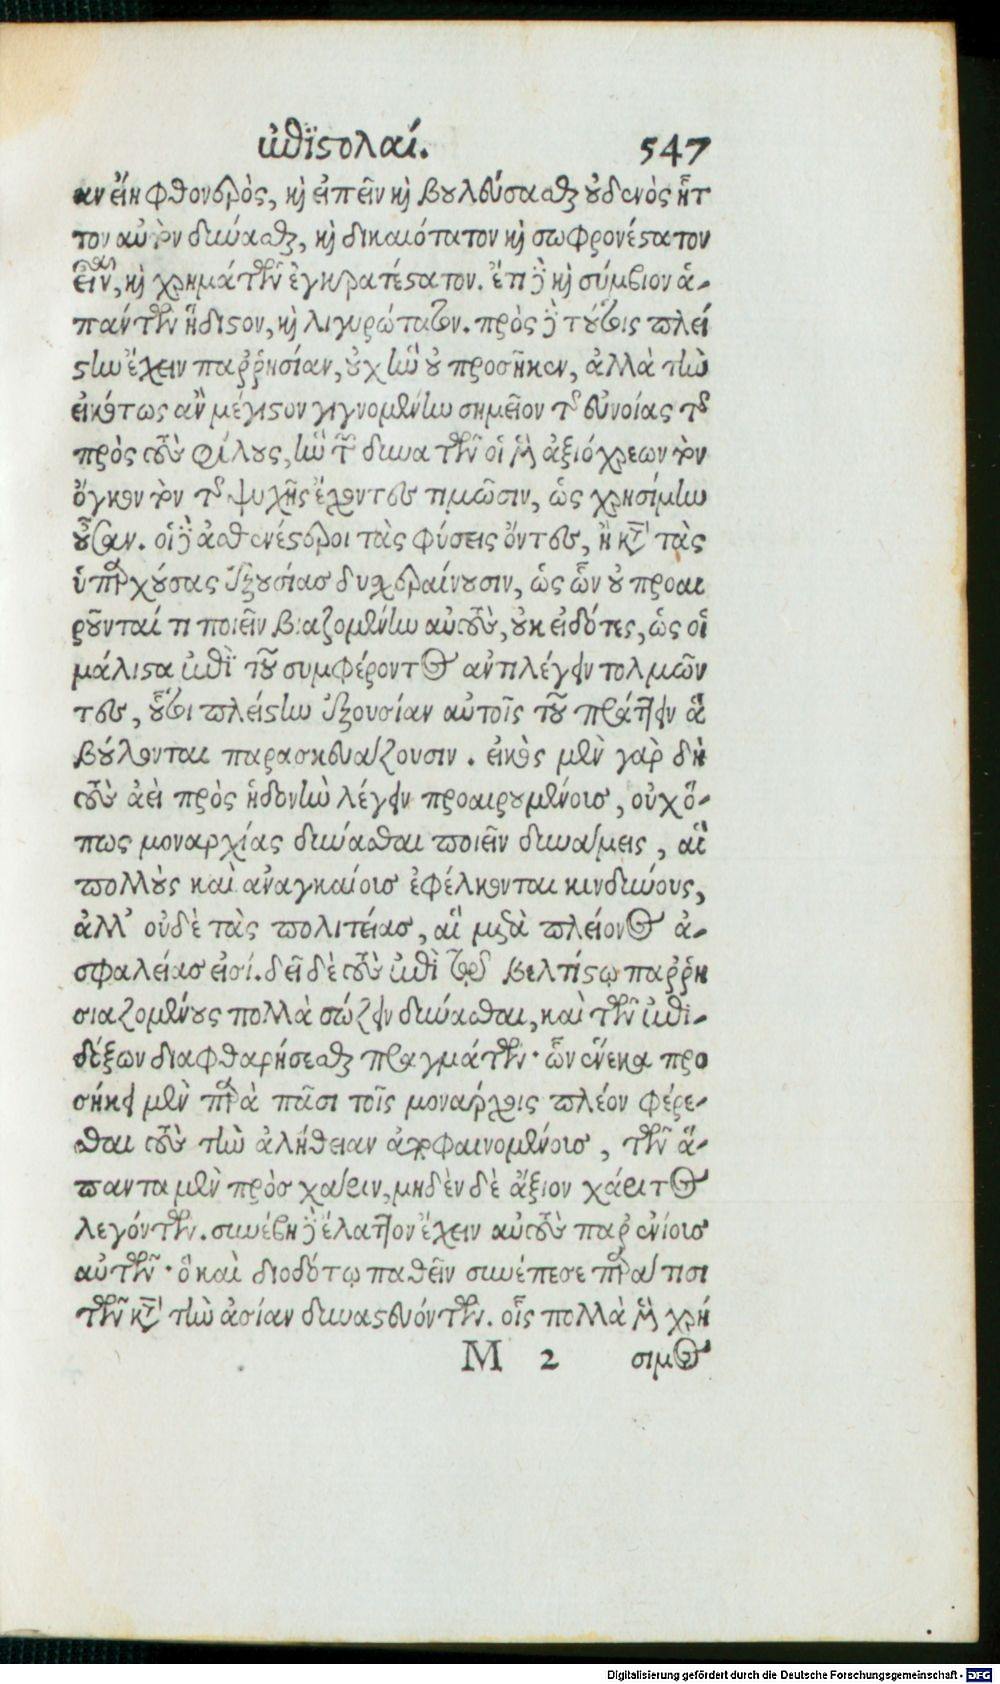 ἐπιστολαί. 547
αν εἴη φθονερὸς, καὶ εἰπεῖν καὶ βουλεύσασθαι οὐδενὸς ἧτ
τον αὐτὸν δύνασθαι, καὶ δικαιότατον καὶ σωφρονέστατον
εἶναι, καὶ χρημάτων ἐγκρατέστατον. ἔτι δὲ καὶ σύμβιον ἁ-
πάντων ἥδιστον, καὶ λιγυρώτατον. πρὸς δὲ τούτοις πλεί
στην ἔχειν παῤῥησίαν, οὐχ ἣν οὐ προσῆκεν, ἀλλὰ τὴν
εἰκότως ἂν μέγιστον γιγνομένην σημεῖον τῆς εὐνοίας τῆς
πρὸς τοὺς φίλους, ἣν τῶν δυνατῶν οἱ μὲν ἀξιόχρεων τὸν
ὄγκον τὸν τῆς ψυχῆς ἔχοντες τιμῶσιν, ὡς χρησίμην
οὖσαν. οἱ δὲ ἀσθενέστεροι τὰς φύσεις ὄντες, ἢ κατὰ τὰς
ὑπαρχούσας ἐξουσίας δυσχεραίνουσιν, ὡς ὧν οὐ προαι
ροῦνταί τι ποιεῖν βιαζομένην αὐτοὺς, οὐκ εἰδότες, ὡς οἱ
μάλιστα ἐπὶ τοῦ συμφέροντος ἀντιλέγειν τολμῶν
τες, οὗτοι πλείστην ἐξουσίαν αὐτοῖς τοῦ πράττειν ἃ
βούλονται παρασκευάζουσιν. εἰκὸς μὲν γὰρ δὴ
τοὺς ἀεὶ πρὸς ἡδονὴν λέγειν προαιρουμένοις, οὐχ ὅ-
πως μοναρχίας δύνασθαι ποιεῖν δυνάμεις, αἳ
πολλοὺς καὶ ἀναγκαίοις ἐφέλκονται κινδύνους,
ἀλλ' οὐδὲ τὰς πολιτείας, αἳ μετὰ πλείονος ἀ-
σφαλείας εἰσί. δεῖ δὲ τοὺς ἐπὶ τῷ βελτίστῳ παῤῥη
σιαζομένους πολλὰ σώζειν δύνασθαι, καὶ τῶν ἐπι-
δέξων διαφθαρήσεσθαι πραγμάτων· ὧν ἕνεκα προ
σήκει μὲν παρὰ πᾶσι τοῖς μονάρχοις πλέον φέρε-
σθαι τοὺς τὴν ἀλήθειαν ἀποφαινομένοις, τῶν ἅ-
παντα μὲν πρὸς χάριν, μηδὲν δὲ ἄξιον χάριτος
λεγόντων. συνέβη δὲ ἔλαττον ἔχειν αὐτοὺς παρ' ἐνίοις
αὐτῶν· ὃ καὶ διοδότῳ παθεῖν συνέπεσε παρά τισι
τῶν κατὰ τὴν ἀσίαν δυναστευόντων. οἷς πολλὰ μὲν χρή
M 2 σιμος
Digitalisierung gefördert durch die Deutsche Forschungsgemeinschaft - DFG